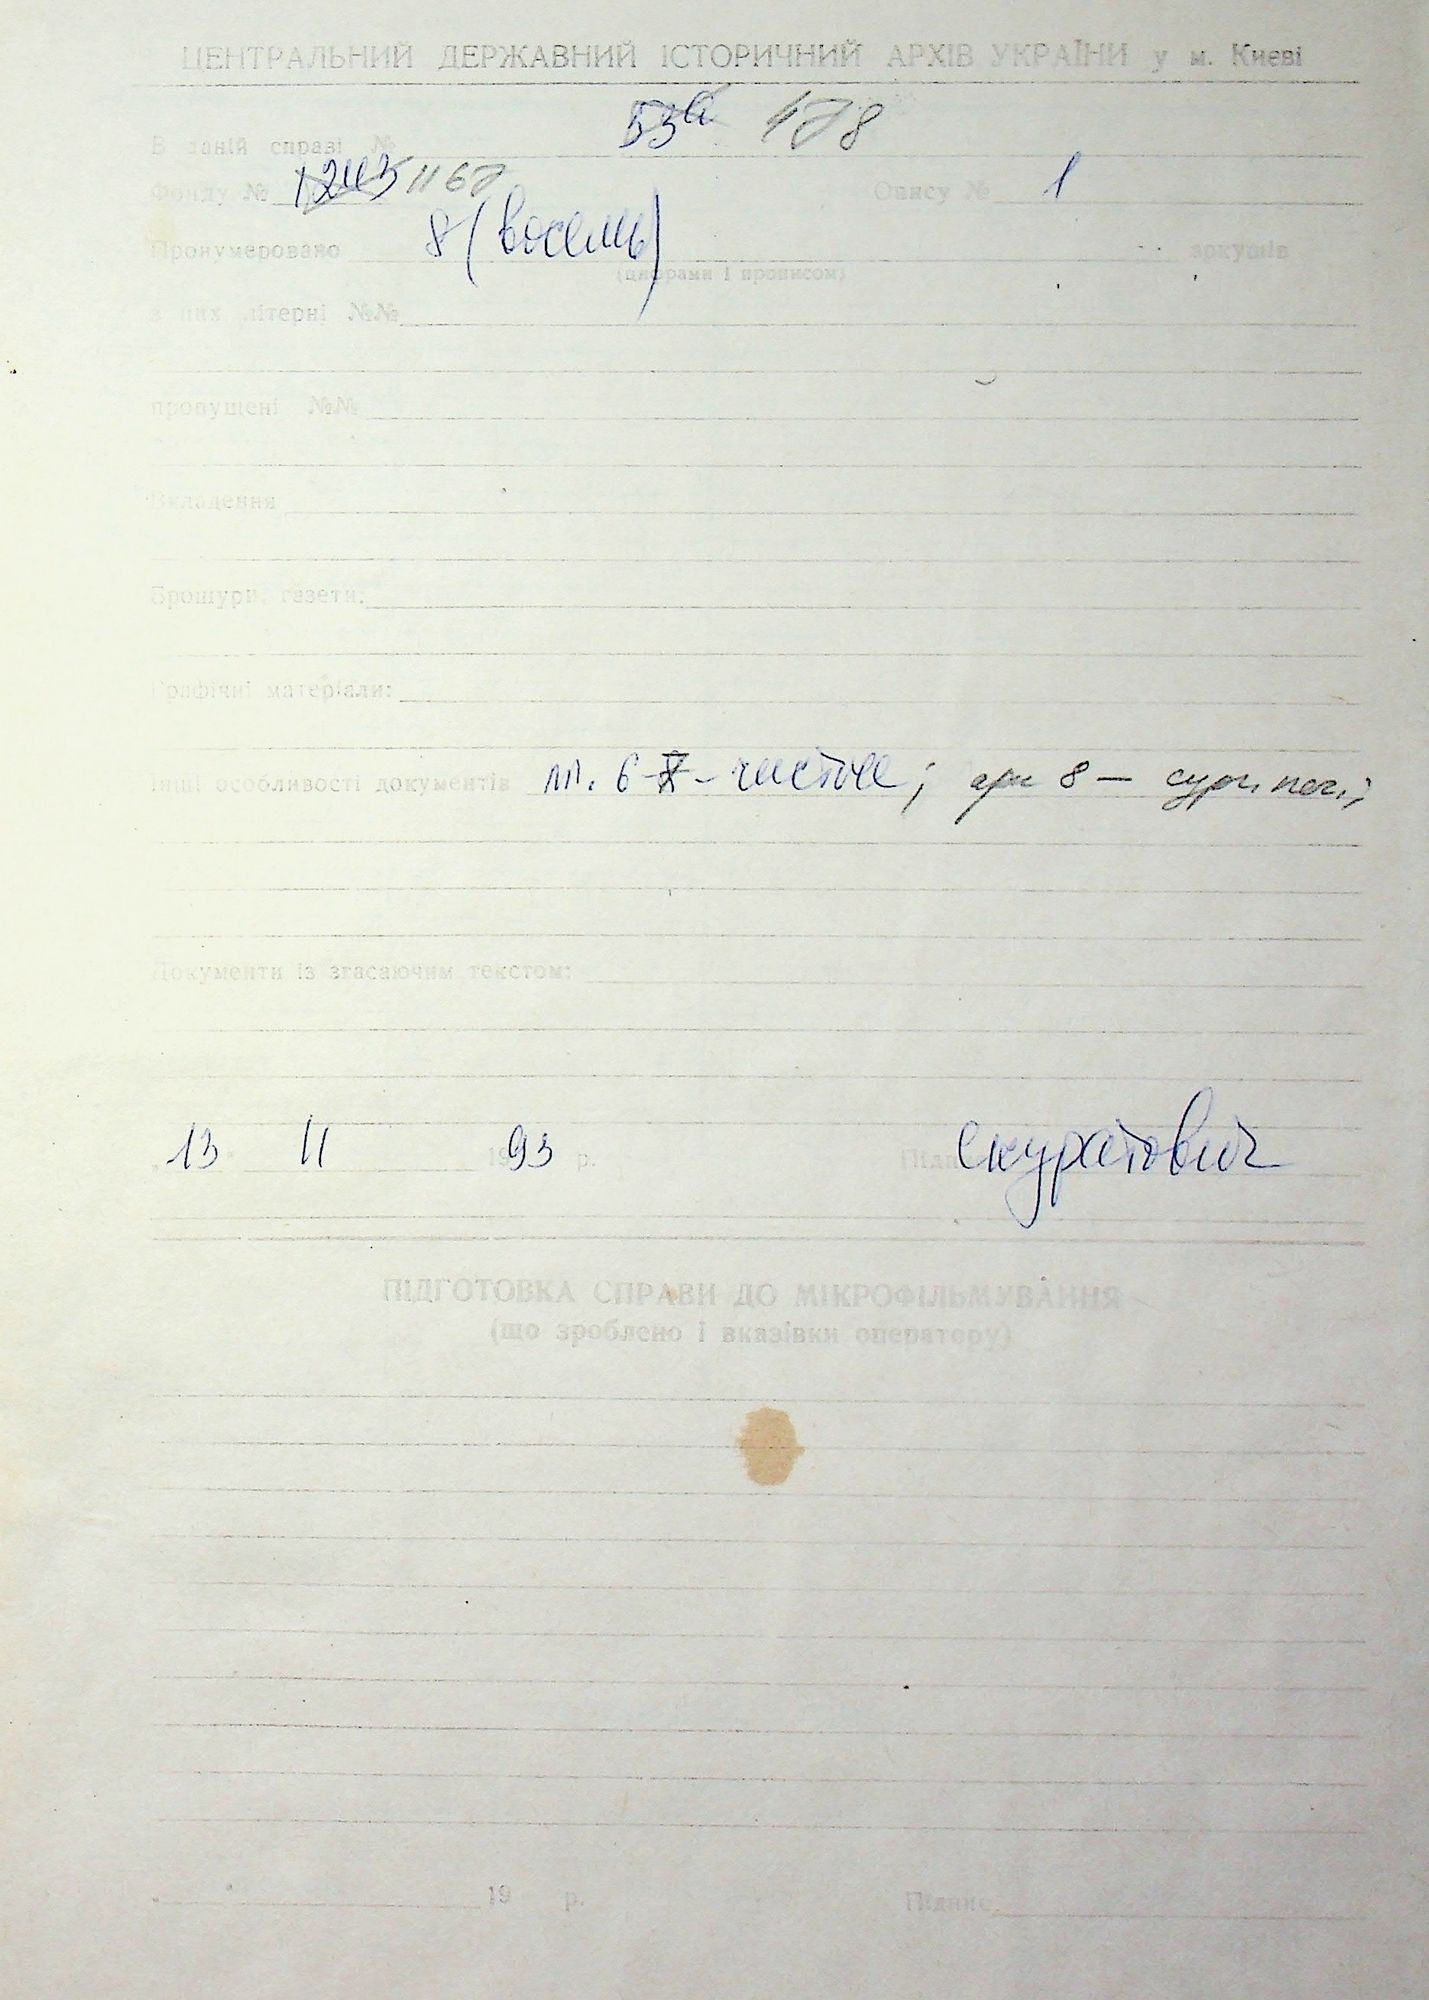 ЦЕНТРАЛЬНИЙ ДЕРЖАВНИЙ ІСТОРИЧНИЙ АРХІВ УКРАЇНИ у м. Києві
В даній справі № 53а 478
Фонду № 1243 1167 Опису № 1
Пронумеровано 8 (восемь) аркушів
(цифрами і прописом)
з них літерні №№
пропущені №№
Вкладення
Брошури, газети:
Графічні матеріали:
Інші особливості документів лл. 6-8 - чистые; арк 8 —
Документи із згасаючим текстом:
„13" 11 1993 р. Підпис Скуратович
ПІДГОТОВКА СПРАВИ ДО МІКРОФІЛЬМУВАННЯ
(що зроблено і вказівки оператору)
„ " 19 р. Підпис